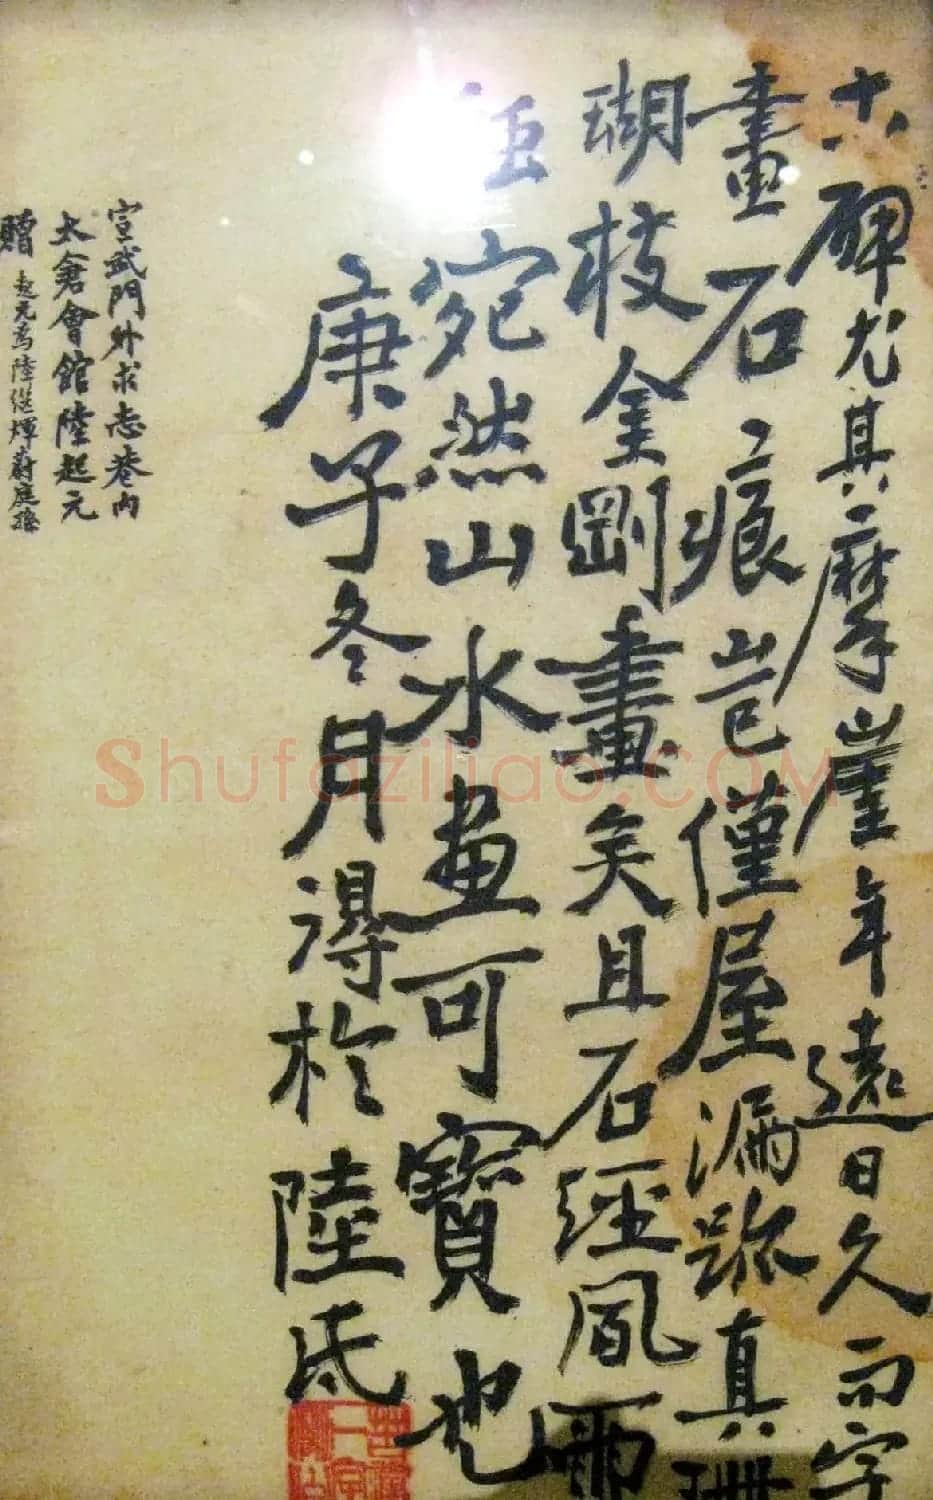 古碑尤其摩崖年遠日久而字
畫石痕豈僅屋漏跡真珊
瑚枝金剛畫矣且石經風雨
宛然山水畫可寶也
庚子冬月得於陸氏
宣武門外求志巷内
太倉會館陸起元
贈 起元為陸继煇蔚庭孫
Shufaziliao.COM